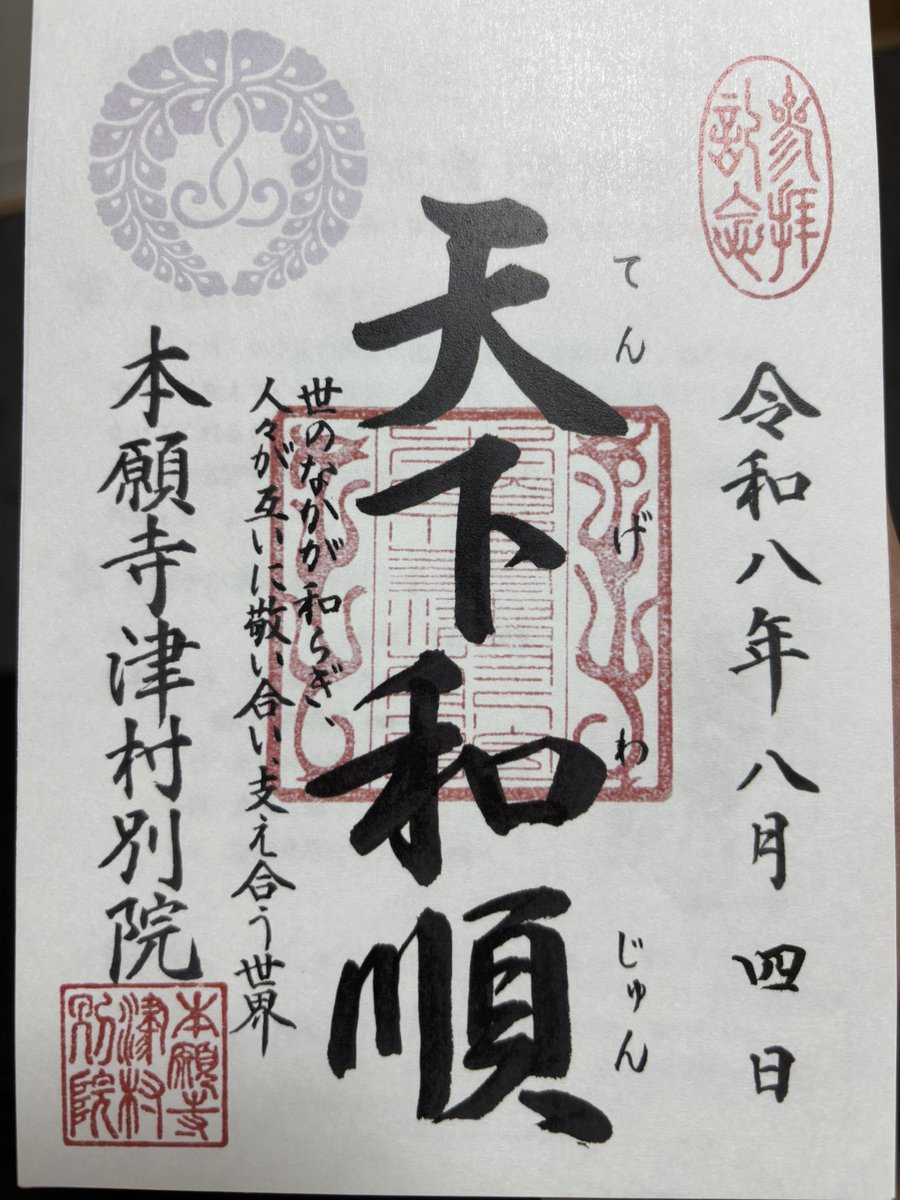 参拝
記念
令和八年八月四日
天下和順
てんげわじゅん
世のなかが和らぎ、
人々が互いに敬い合い、支え合う世界
本願寺津村別院
本願寺
津村
別院